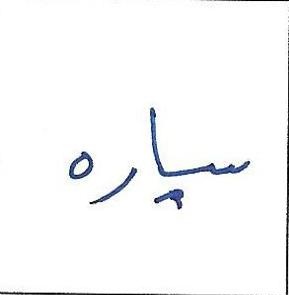 سپارہ